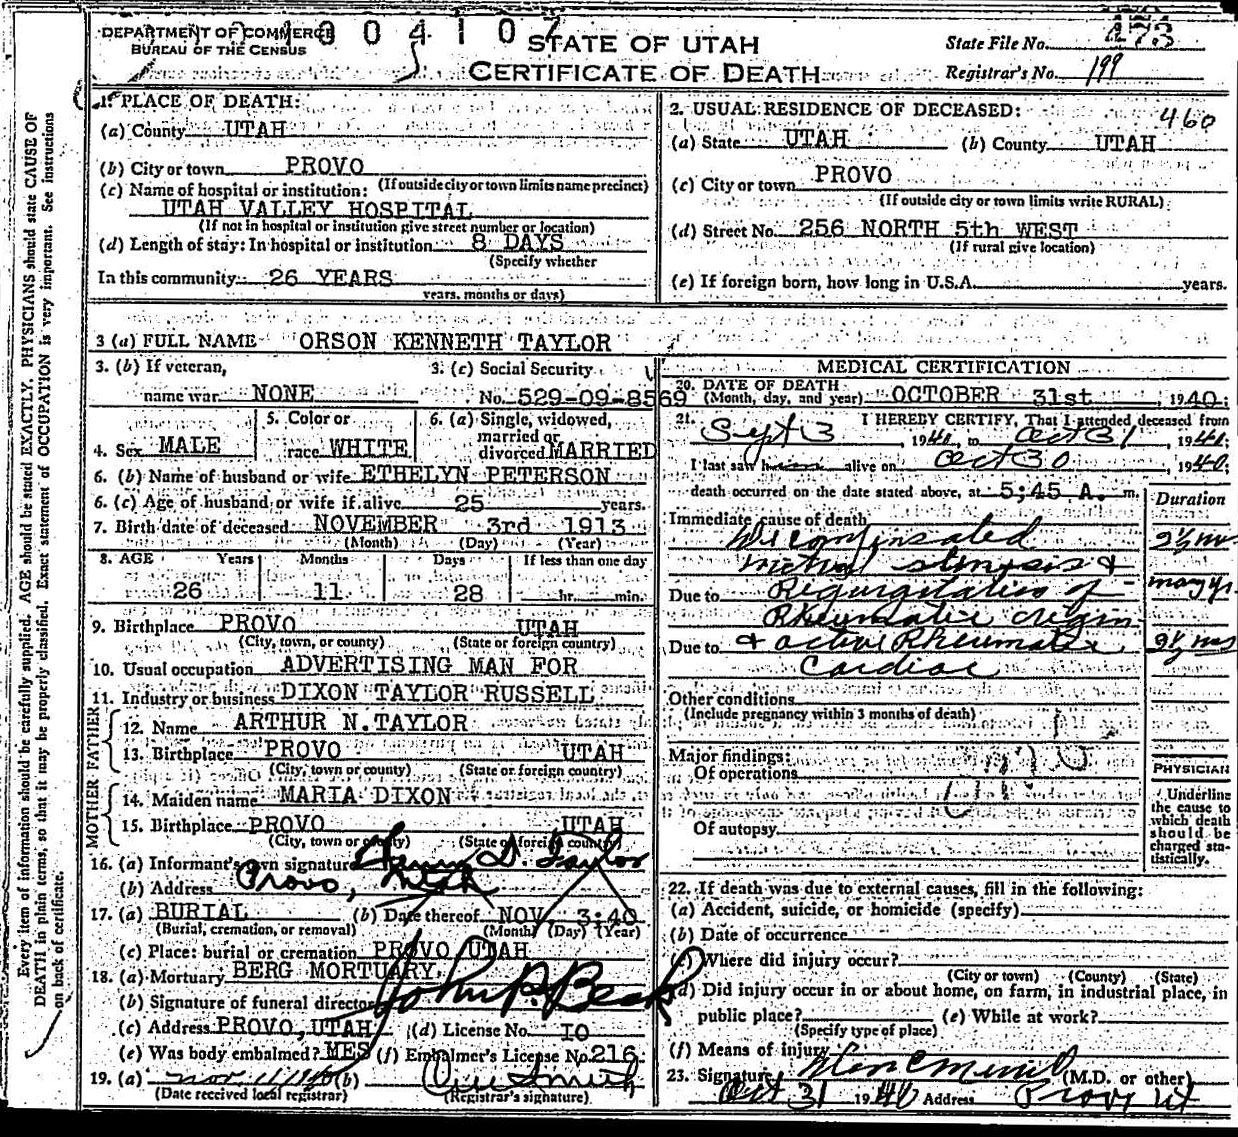 DEPARTMENT OF COMMERCE
BUREAU OF THE CENSUS
1004107
STATE OF UTAH
CERTIFICATE OF DEATH
State File No. 473
Registrar's No. 199
Every item of information should be carefully supplied. AGE should be stated EXACTLY. PHYSICIANS should state CAUSE OF
DEATH in plain terms, so that it may be properly classified. Exact statement of OCCUPATION is very important. See instructions
on back of certificate.
1. PLACE OF DEATH:
(a) County UTAH
(b) City or town PROVO
(If outside city or town limits name precinct)
(c) Name of hospital or institution:
UTAH VALLEY HOSPITAL
(If not in hospital or institution give street number or location)
(d) Length of stay: In hospital or institution 8 DAYS
(Specify whether
In this community 26 YEARS
years, months or days)
2. USUAL RESIDENCE OF DECEASED:
460
(a) State UTAH (b) County UTAH
(c) City or town PROVO
(If outside city or town limits write RURAL)
(d) Street No. 256 NORTH 5th WEST
(If rural give location)
(e) If foreign born, how long in U.S.A. years.
3 (a) FULL NAME ORSON KENNETH TAYLOR
3. (b) If veteran,
name war NONE
3. (c) Social Security
No. 529-09-8569
4. Sex MALE
5. Color or
race WHITE
6. (a) Single, widowed,
married or
divorced MARRIED
6. (b) Name of husband or wife ETHELYN PETERSON
6. (c) Age of husband or wife if alive 25 years.
7. Birth date of deceased NOVEMBER 3rd 1913
(Month) (Day) (Year)
8. AGE Years Months Days If less than one day
26 11 28 hr. min.
9. Birthplace PROVO UTAH
(City, town, or county) (State or foreign country)
10. Usual occupation ADVERTISING MAN FOR
11. Industry or business DIXON TAYLOR RUSSELL
FATHER
12. Name ARTHUR N. TAYLOR
13. Birthplace PROVO UTAH
(City, town or county) (State or foreign country)
MOTHER
14. Maiden name MARIA DIXON
15. Birthplace PROVO UTAH
(City, town or county) (State or foreign country)
16. (a) Informant's own signature D. Taylor
(b) Address Provo, Utah
17. (a) BURIAL (b) Date thereof NOV. 3:40
(Burial, cremation, or removal) (Month) (Day) (Year)
(c) Place: burial or cremation PROVO UTAH
18. (a) Mortuary BERG MORTUARY
(b) Signature of funeral director John P. Beck
(c) Address PROVO, UTAH (d) License No. IO
(e) Was body embalmed? MES (f) Embalmer's License No. 216
19. (a) Nov. 1, 1940 (b) Smith
(Date received local registrar) (Registrar's signature)
MEDICAL CERTIFICATION
20. DATE OF DEATH
(Month, day, and year) OCTOBER 31st, 1940
21. I HEREBY CERTIFY, That I attended deceased from
Sept 3 1940, to Oct 31 1940;
I last saw him alive on Oct 30, 1940;
death occurred on the date stated above, at 5;45 A. m.
Duration
Immediate cause of death
Decompensated 2½ mo
mitral stenosis &
Due to Regurgitation of many yrs
Rheumatic origin
Due to & active Rheumatic 2½ mos
Cardiac
Other conditions
(Include pregnancy within 3 months of death)
Major findings:
Of operations
Of autopsy
PHYSICIAN
Underline
the cause to
which death
should be
charged sta-
tistically.
22. If death was due to external causes, fill in the following:
(a) Accident, suicide, or homicide (specify)
(b) Date of occurrence
(c) Where did injury occur?
(City or town) (County) (State)
(d) Did injury occur in or about home, on farm, in industrial place, in
public place? (e) While at work?
(Specify type of place)
(f) Means of injury
23. Signature (M.D. or other)
Oct 31 1940 Address Provo Ut